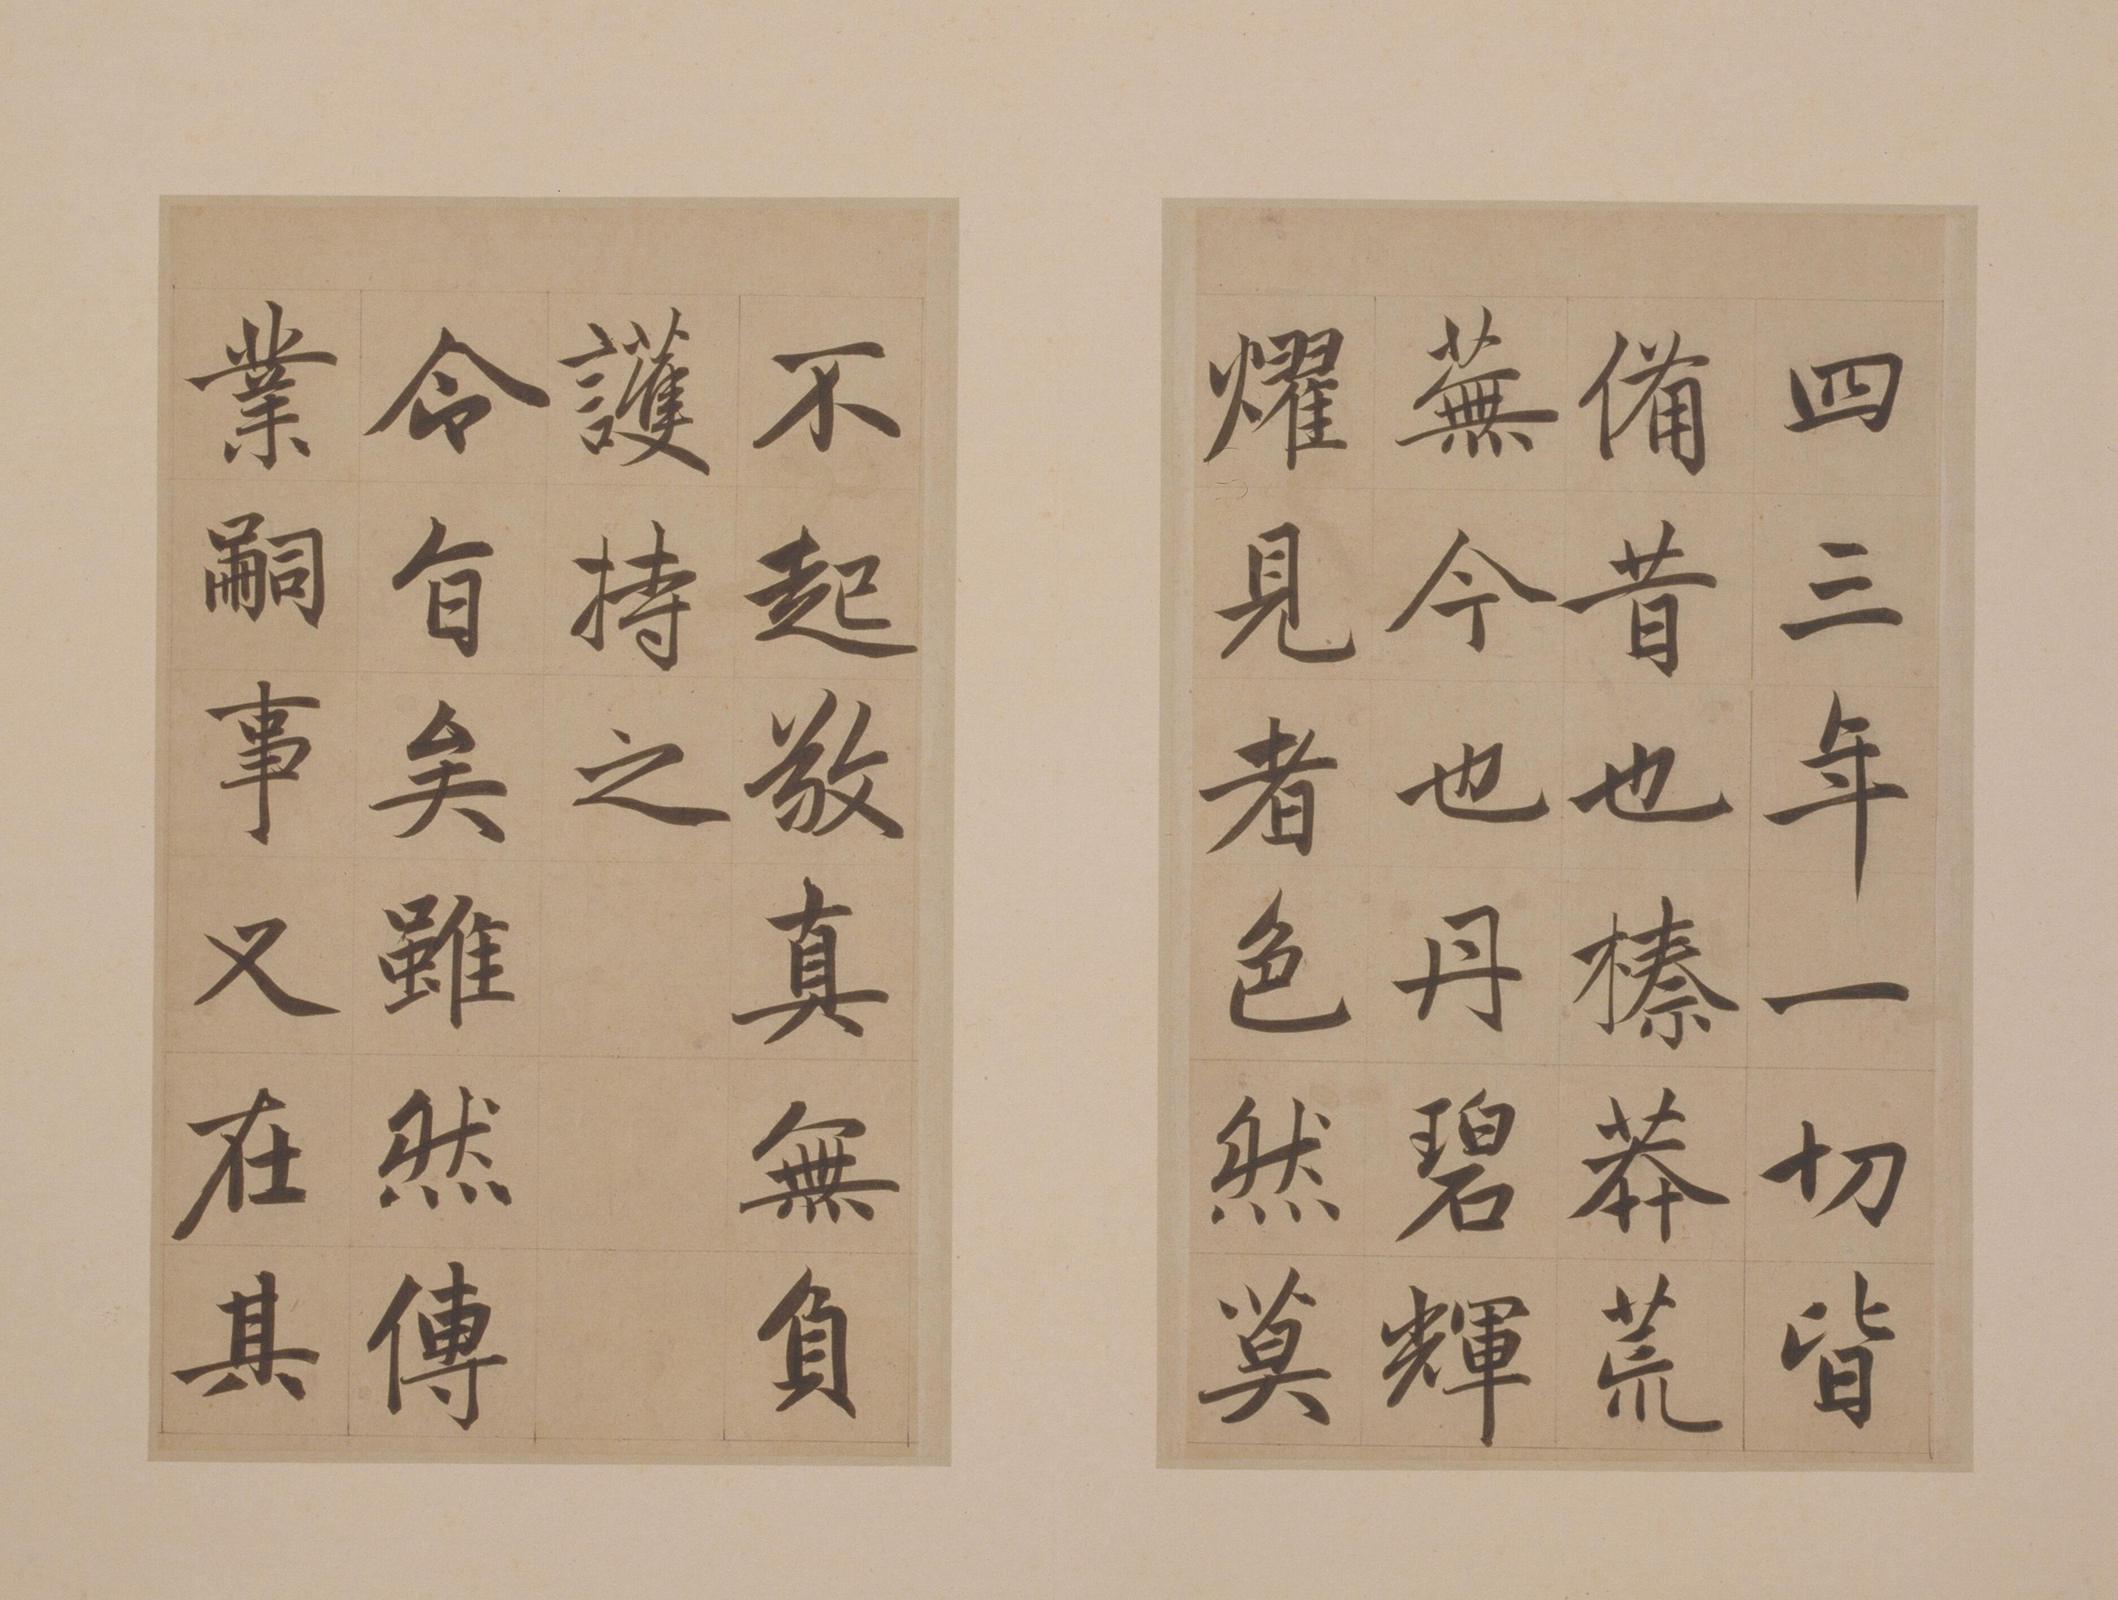 四三年一切皆
備昔也榛莽荒
蕪今也丹碧輝
燿見者色然莫
不起敬真無負
護持之
令旨矣雖然傳
業嗣事又在其